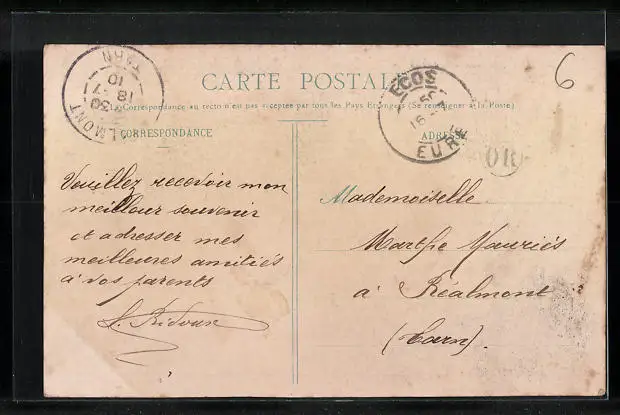 6
CARTE POSTALE
(La Correspondance au recto n'est pas acceptée par tous les Pays Etrangers (Se renseigner à la Poste)
CORRESPONDANCE
ADRESSE
TARN
10
18-7
30
ALMONT
ECOS
16
EURE
OR
Veuillez recevoir mon
meilleur souvenir
et adresser mes
meilleures amitiés
à vos parents
Mademoiselle
Marthe Mauriès
à Réalmont
(Tarn).